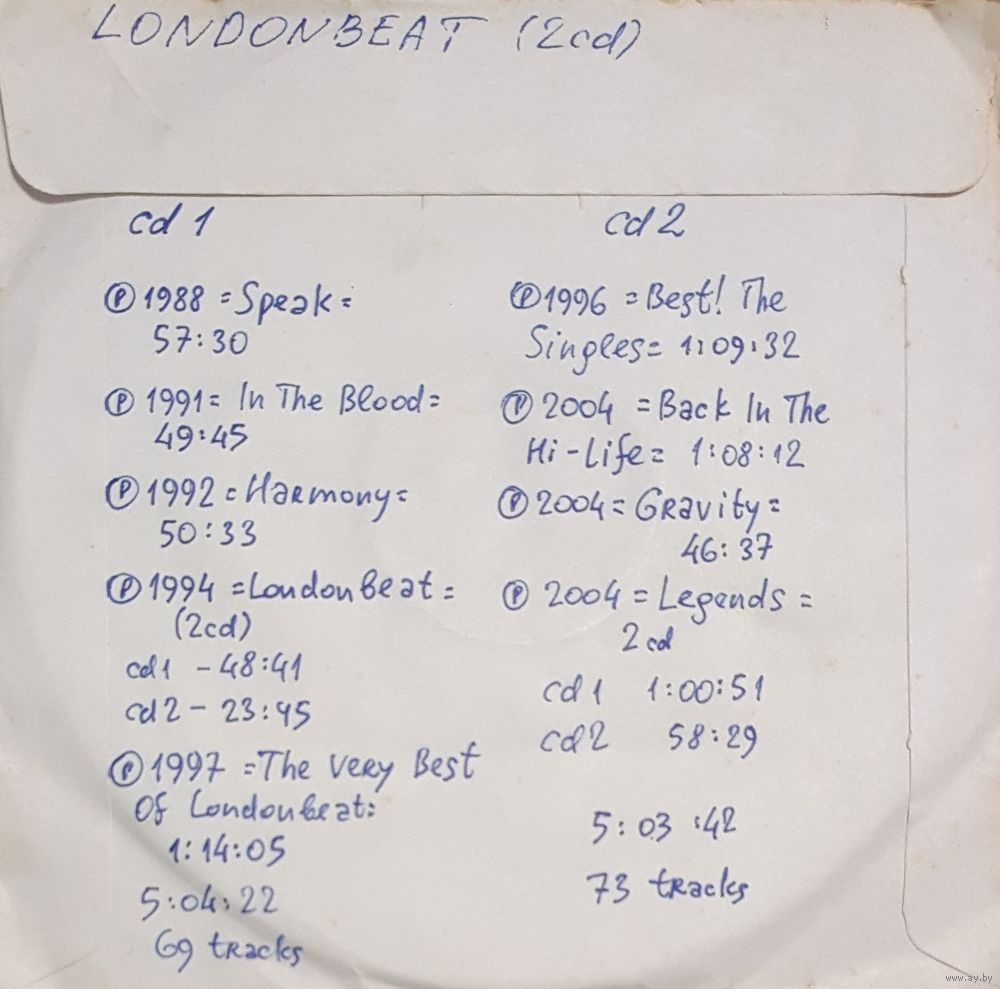 LONDONBEAT (2cd)
cd 1
℗ 1988 = Speak =
57:30
℗ 1991 = In The Blood =
49:45
℗ 1992 = Harmony =
50:33
℗ 1994 = Londonbeat =
(2cd)
cd1 - 48:41
cd2 - 23:45
℗ 1997 = The Very Best
Of Londonbeat =
1:14:05
5:04:22
69 tracks
cd 2
℗ 1996 = Best! The
Singles = 1:09:32
℗ 2004 = Back In The
Hi-Life = 1:08:12
℗ 2004 = Gravity =
46:37
℗ 2004 = Legends =
2 cd
cd 1 1:00:51
cd 2 58:29
5:03:42
73 tracks
www.ay.by